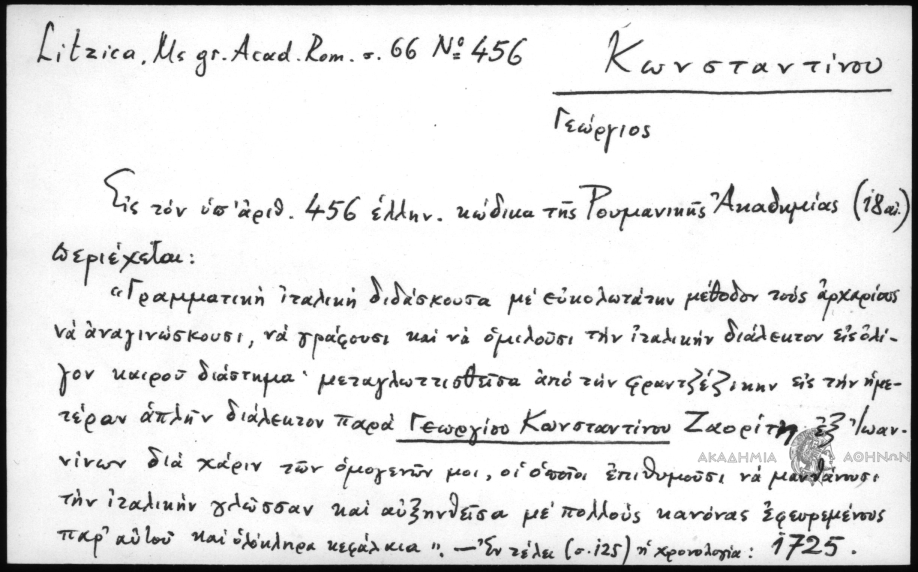 Litzica, Ms gr. Acad. Rom. σ. 66 Nº 456
Κωνσταντίνου
Γεώργιος
Εἰς τὸν ὑπ' ἀριθ. 456 ἑλλην. κώδικα τῆς Ρουμανικῆς Ἀκαδημίας (18 αἰ.)
περιέχεται:
"Γραμματικὴ ἰταλικὴ διδάσκουσα μὲ εὐκολωτάτην μέθοδον τοὺς ἀρχαρίους
νὰ ἀναγινώσκουσι, νὰ γράφουσι καὶ νὰ ὁμιλοῦσι τὴν ἰταλικὴν διάλεκτον εἰς ὀλί-
γον καιροῦ διάστημα· μεταγλωττισθεῖσα ἀπὸ τὴν φραντζέζικην εἰς τὴν ἡμε-
τέραν ἁπλῆν διάλεκτον παρὰ Γεωργίου Κωνσταντίνου Ζαορίτη ἐξ Ἰωαν-
νίνων διὰ χάριν τῶν ὁμογενῶν μοι, οἱ ὁποῖοι ἐπιθυμοῦσι νὰ μανθάνουσι
τὴν ἰταλικὴν γλῶσσαν καὶ αὐξηνθεῖσα μὲ πολλοὺς κανόνας ἐφευρεμένους
παρ' αὐτοῦ καὶ ὁλόκληρα κεφάλαια". — Ἐν τέλει (σ. 125) ἡ χρονολογία: 1725.
ΑΚΑΔΗΜΙΑ ΑΘΗΝΩΝ